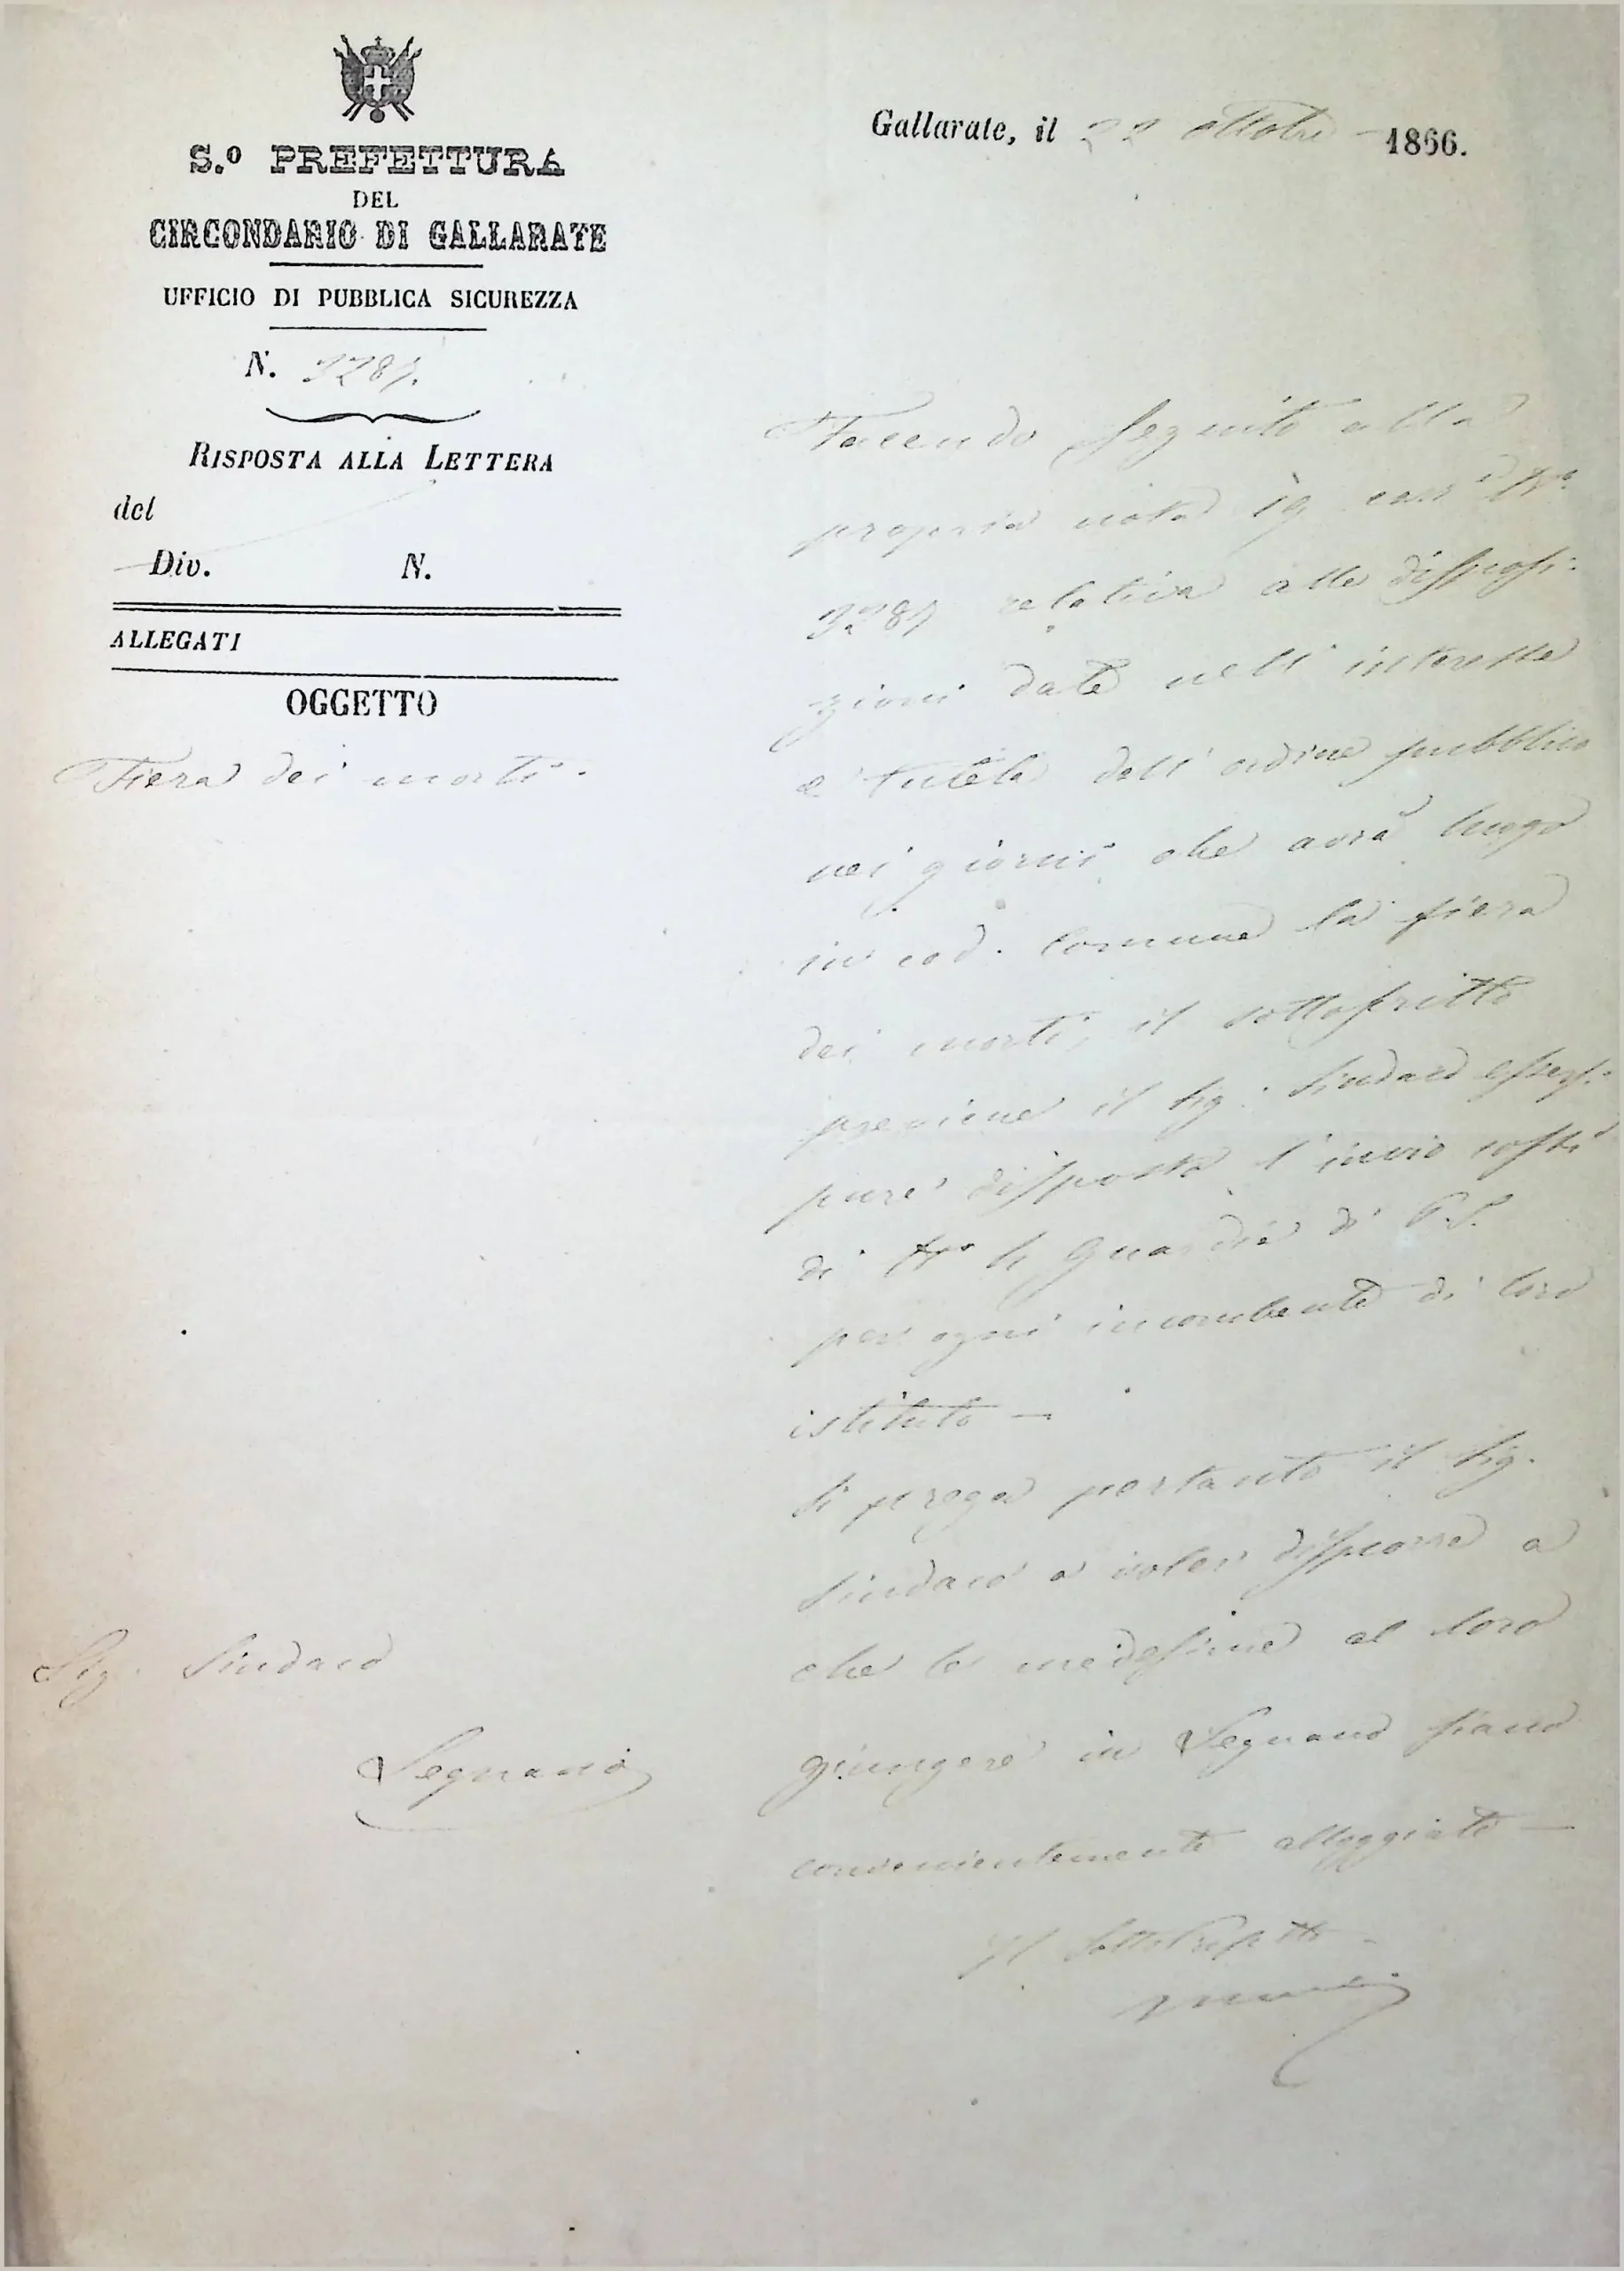 S.º PREFETTURA
DEL
CIRCONDARIO DI GALLARATE
UFFICIO DI PUBBLICA SICUREZZA
N. 3289.
RISPOSTA ALLA LETTERA
del
Div. N.
ALLEGATI
OGGETTO
Fiera dei morti.
Sig. Sindaco
Legnano
Gallarate, il 22 ottobre 1866.
Facendo seguito alla
propria nota 19 corr.e N.º
3289 relativa alle disposi-
zioni date nell'interesse
e tutela dell'ordine pubblico
nei giorni che avrà luogo
in cod. Comune la fiera
dei morti, il sottoscritto
previene il Sig. Sindaco essersi
pure disposto l'invio costì
di N.º 4 Guardie di P.S.
per ogni incombente di loro
istituto —
Si prega pertanto il Sig.
Sindaco a voler disporre a
che le medesime al loro
giungere in Legnano siano
convenientemente alloggiate —
Il Sotto Prefetto